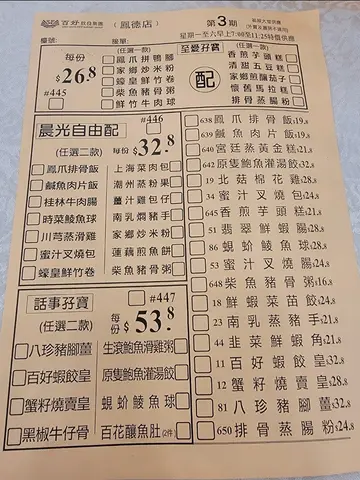 百好飲食集團
(鳳德店)
第3期
編號:
接單:
星期一至六早上7:00至11:25特價供應
(任選一款)
至愛孖寶
(任選一款)
每份
$26.8
#445
鳳爪拼鴨腳
家鄉炒米粉
蠔皇鮮竹卷
柴魚豬骨粥
鮮竹牛肉球
配
香煎芋頭糕
清甜五豆糕
家鄉煎釀茄子
懷舊馬拉糕
排骨蒸腸粉
#446
晨光自由配
(任選二款)
每份
$32.8
鳳爪排骨飯
鹹魚肉片飯
桂林牛肉腸
時菜鯪魚球
川芎蒸滑雞
蜜汁叉燒包
蠔皇鮮竹卷
上海菜肉包
潮州蒸粉果
薑汁雞包仔
南乳燜豬手
家鄉炒米粉
蓮藕煎魚餅
柴魚豬骨粥
#447
話事孖寶
(任選二款)
每份
$53.8
八珍豬腳薑
百好蝦餃皇
蟹籽燒賣皇
黑椒牛仔骨
生滾鮑魚滑雞粥
原隻鮑魚灌湯餃
蜆蚧鯪魚球
百花釀魚肚(2件)
638 鳳爪排骨飯$19.8
639 鹹魚肉片飯$19.8
640 宮廷蒸黃金糕$21.8
642 原隻鮑魚灌湯餃$32.8
19 北菇棉花雞$28.8
34 蜜汁叉燒包$24.8
645 香煎芋頭糕$21.8
51 翡翠鮮蝦腸$28.8
86 蜆蚧鯪魚球$28.8
53 蜜汁叉燒腸$24.8
648 柴魚豬骨粥$16.8
18 鮮蝦菜苗餃$24.8
23 南乳蒸豬手$21.8
44 韭菜鮮蝦角$21.8
11 百好蝦餃皇$32.8
12 蟹籽燒賣皇$28.8
81 八珍豬腳薑$32.8
650 排骨蒸腸粉$24.8